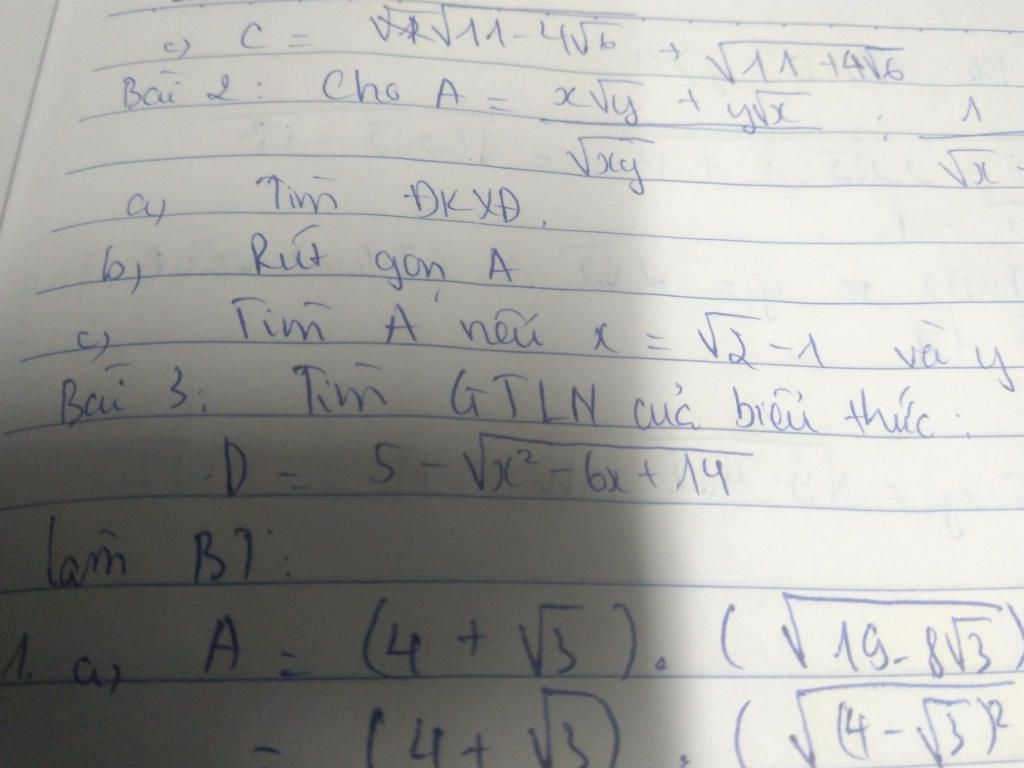 c) C = √11 - 4√6 + √11 + 4√6
Bài 2: Cho A = (x√y + y√x) / √xy : 1 / √x -
a) Tìm ĐKXĐ.
b, Rút gọn A
c) Tìm A nếu x = √2 - 1 và y
Bài 3: Tìm GTLN của biểu thức:
D = 5 - √x² - 6x + 14
làm BT:
1. a, A = (4 + √3). (√19 - 8√3
= (4 + √3). (√(4 - √3)²